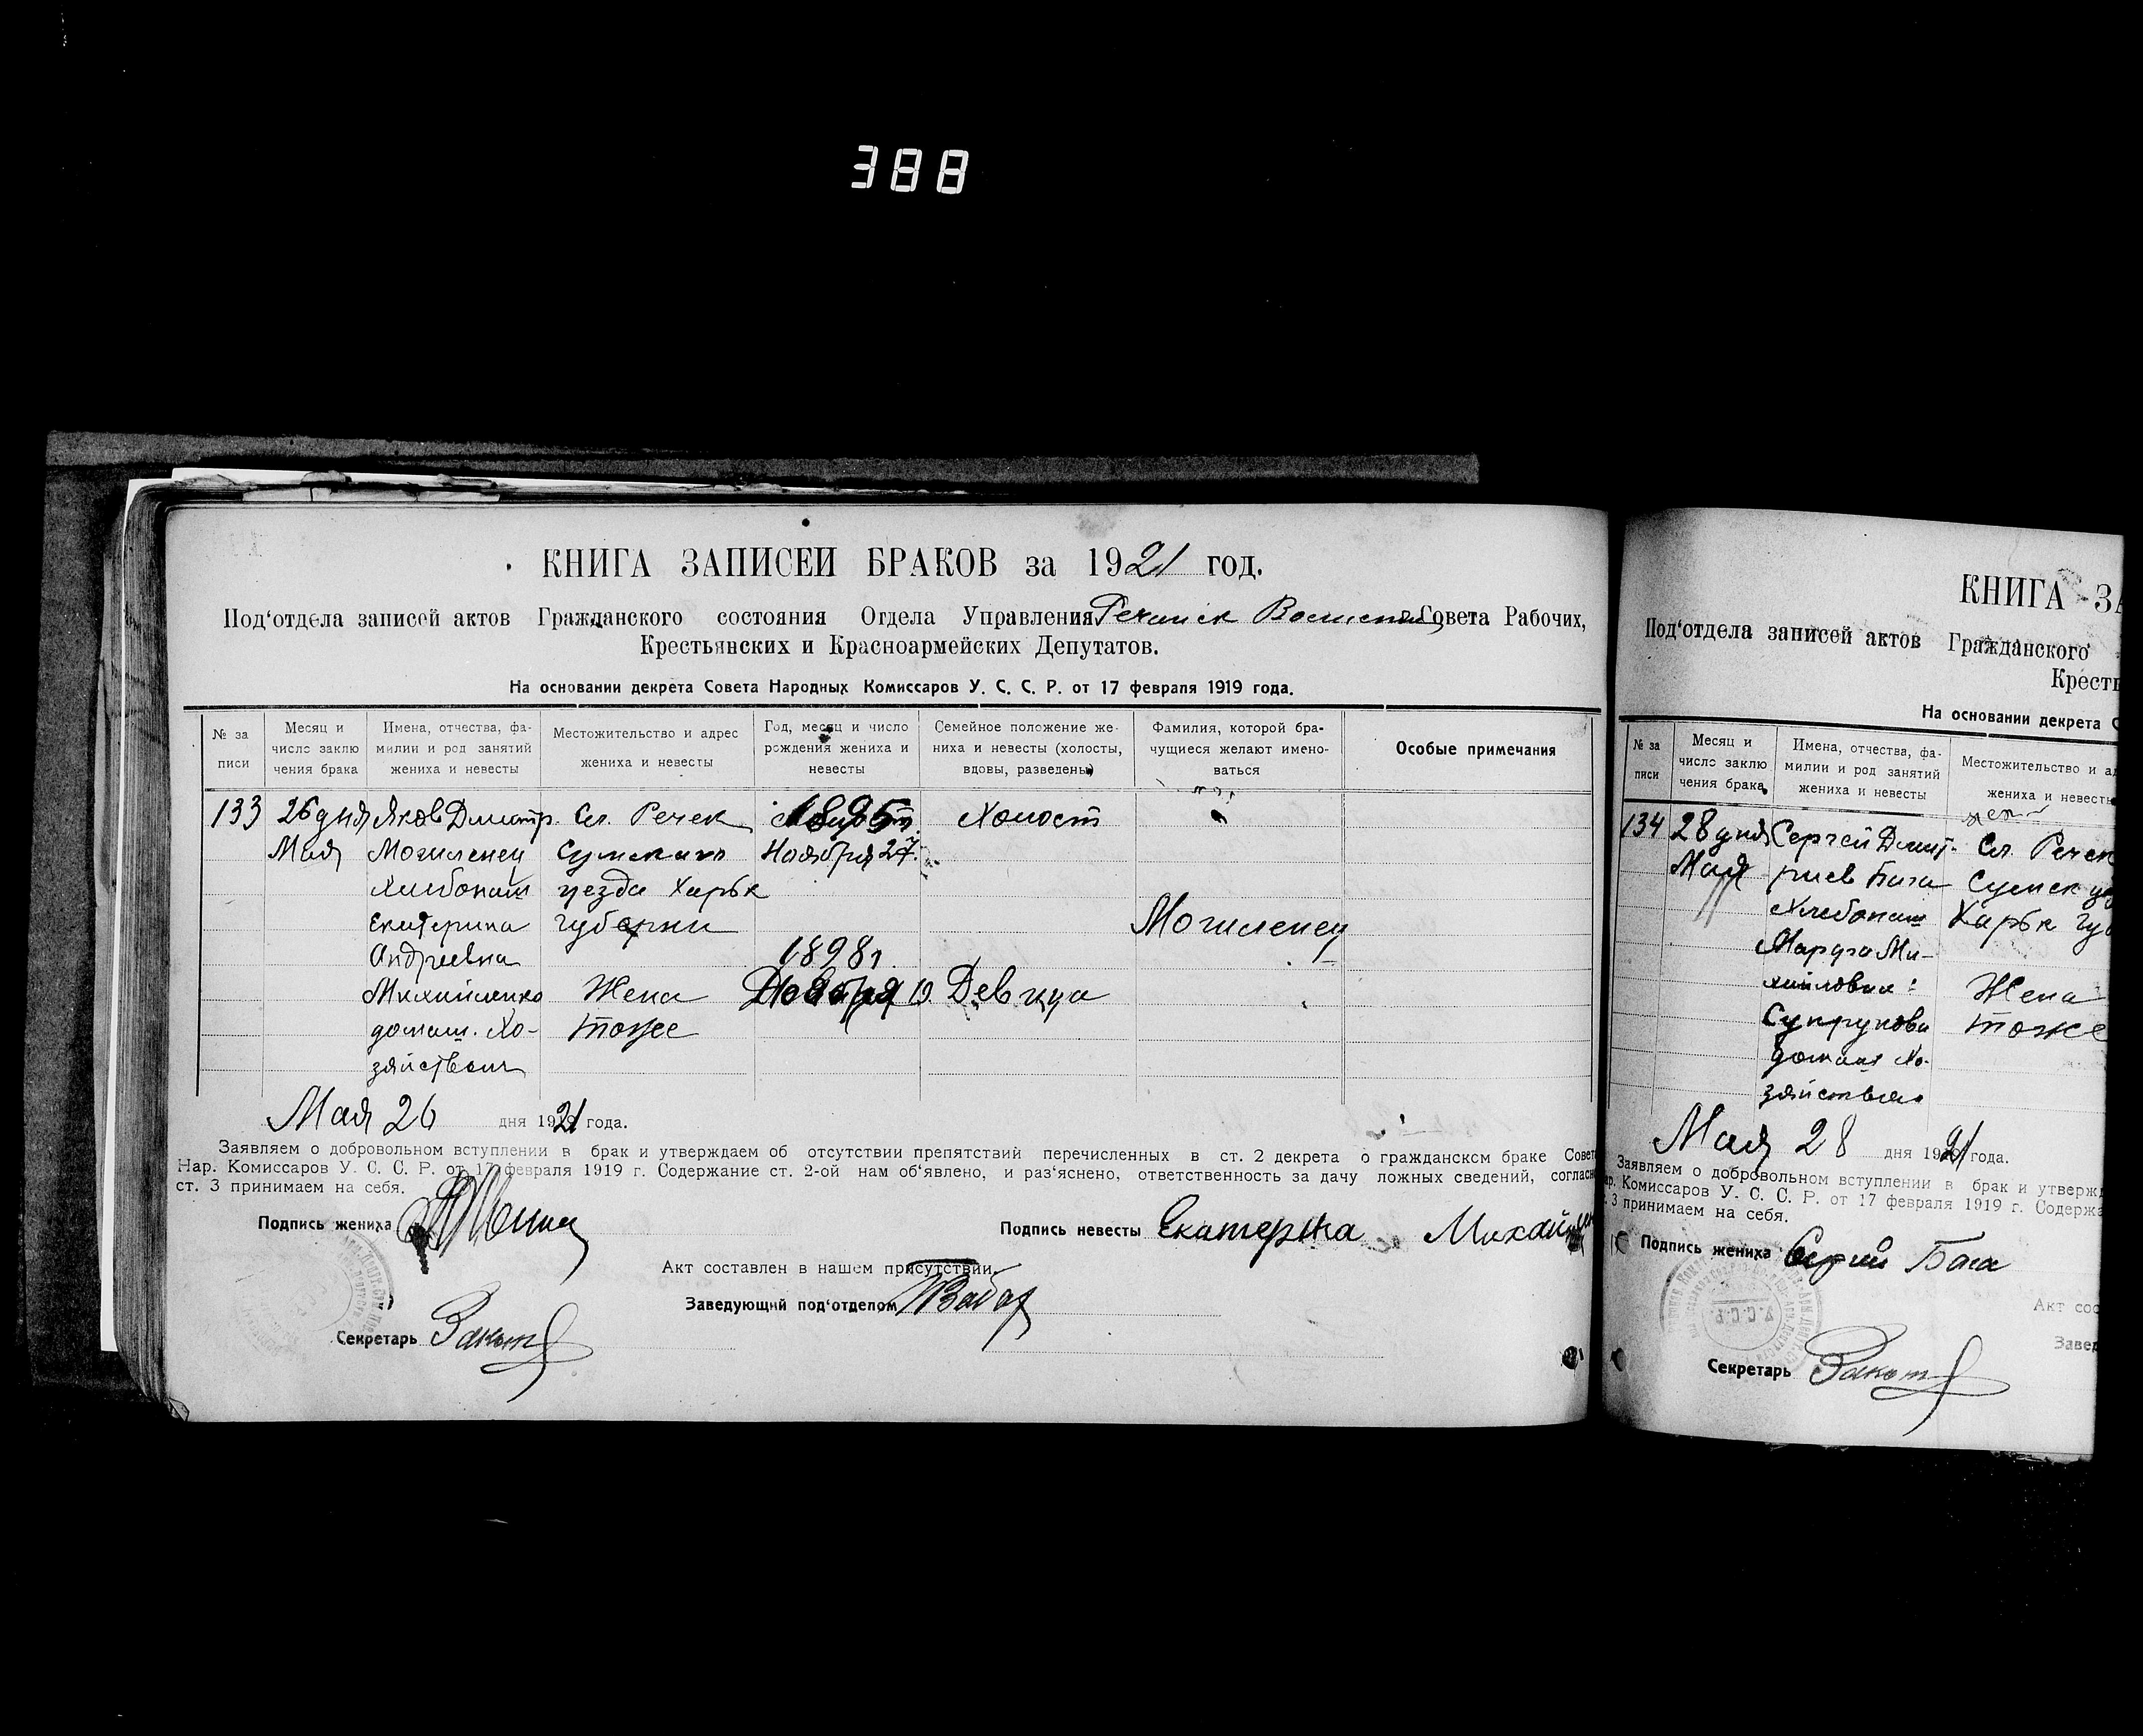 388
КНИГА ЗАПИСЕЙ БРАКОВ за 1921 год.
Под‘отдела записей актов Гражданского состояния Отдела Управления Совета Рабочих,
Крестьянских и Красноармейских Депутатов.
На основании декрета Совета Народных Комиссаров У. С. С. Р. от 17 февраля 1919 года.
№ за Месяц и Имена, отчества, фа- Местожительство и адрес Год, месяц и число Семейное положение же- Фамилия, которой бра- Особые примечания
писи число заклю милии и род занятий жениха и невесты рождения жениха и ниха и невесты (холосты, чущиеся желают имено-
чения брака жениха и невесты невесты вдовы, разведены) ваться
133 26 дня Яков Дмитр. Сл. Речек 1895 Холост
Мая Могиленец Сумского Ноября 27.
хлебопаш уезда Харьк
Екатерина губерни Могиленец
Андреевна 1898
Михайленко Жена Девица
домаш. Хо- тоже
зяйством
Мая 26 дня 1921 года.
Заявляем о добровольном вступлении в брак и утверждаем об отсутствии препятствий перечисленных в ст. 2 декрета о гражданском браке Совет
Нар. Комиссаров У. С. С. Р. от 17 февраля 1919 г. Содержание ст. 2-ой нам об‘явлено, и раз‘яснено, ответственность за дачу ложных сведений, согласн
ст. 3 принимаем на себя.
Подпись жениха Подпись невесты Екатерина Михайлен
Акт составлен в нашем присутствии.
Заведующий под‘отделом
Секретарь
КНИГА ЗА
Под‘отдела записей актов Гражданского
Кресть
На основании декрета С
№ за Месяц и Имена, отчества, фа- Местожительство и ад
писи число заклю милии и род занятий жениха и невесты
чения брака жениха и невесты
134 28 дня Сергей Дмит- Сл. Речек
Мая риев Баса Сумск уез
Хлебопаш Харьк губ
Марфа Ми-
хайловна Жена
Супрунова тоже
домаш Хо-
зяйством
Мая 28 дня 1921 года.
Заявляем о добровольном вступлении в брак и утвержд
ар. Комиссаров У. С. С. Р. от 17 февраля 1919 г. Содержа
. 3 принимаем на себя.
Подпись жениха Баса
Акт сос
Завед
Секретарь